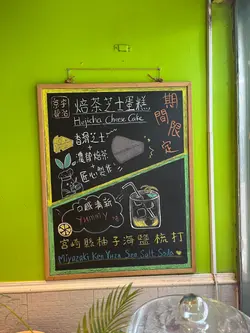 焙茶芝士蛋糕
Hojicha Cheese Cake
期間限定
香濃芝士
+
濃郁焙茶
+
匠心製作
鹹清新
Yummy
宮崎縣柚子海鹽梳打
Miyazaki Ken Yuzu Sea Salt Soda